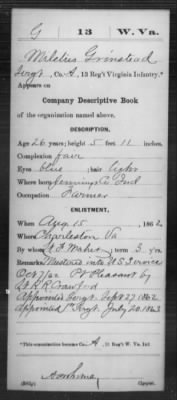 G | 13 | W. Va.
Miletus Grinstead
Sergt, Co. A, 13 Reg't Virginia Infantry.*
Appears on
Company Descriptive Book
of the organization named above.
DESCRIPTION.
Age 26 years; height 5 feet 11 inches.
Complexion fair
Eyes blue; hair light
Where born Ind
Occupation Farmer
ENLISTMENT.
When Aug 15, 1862.
Where Charleston Va
By whom Maher; term 3 y'rs.
Remarks: Mustered into U S Service
Oct 7/62 Pt Pleasant by
Lt R R Crawford
Appointed Sergt Sept 27 1862
Appointed Sergt July 20 1863
*This organization became Co. A, 13 Reg't W. Va. Inf.
Copyist.